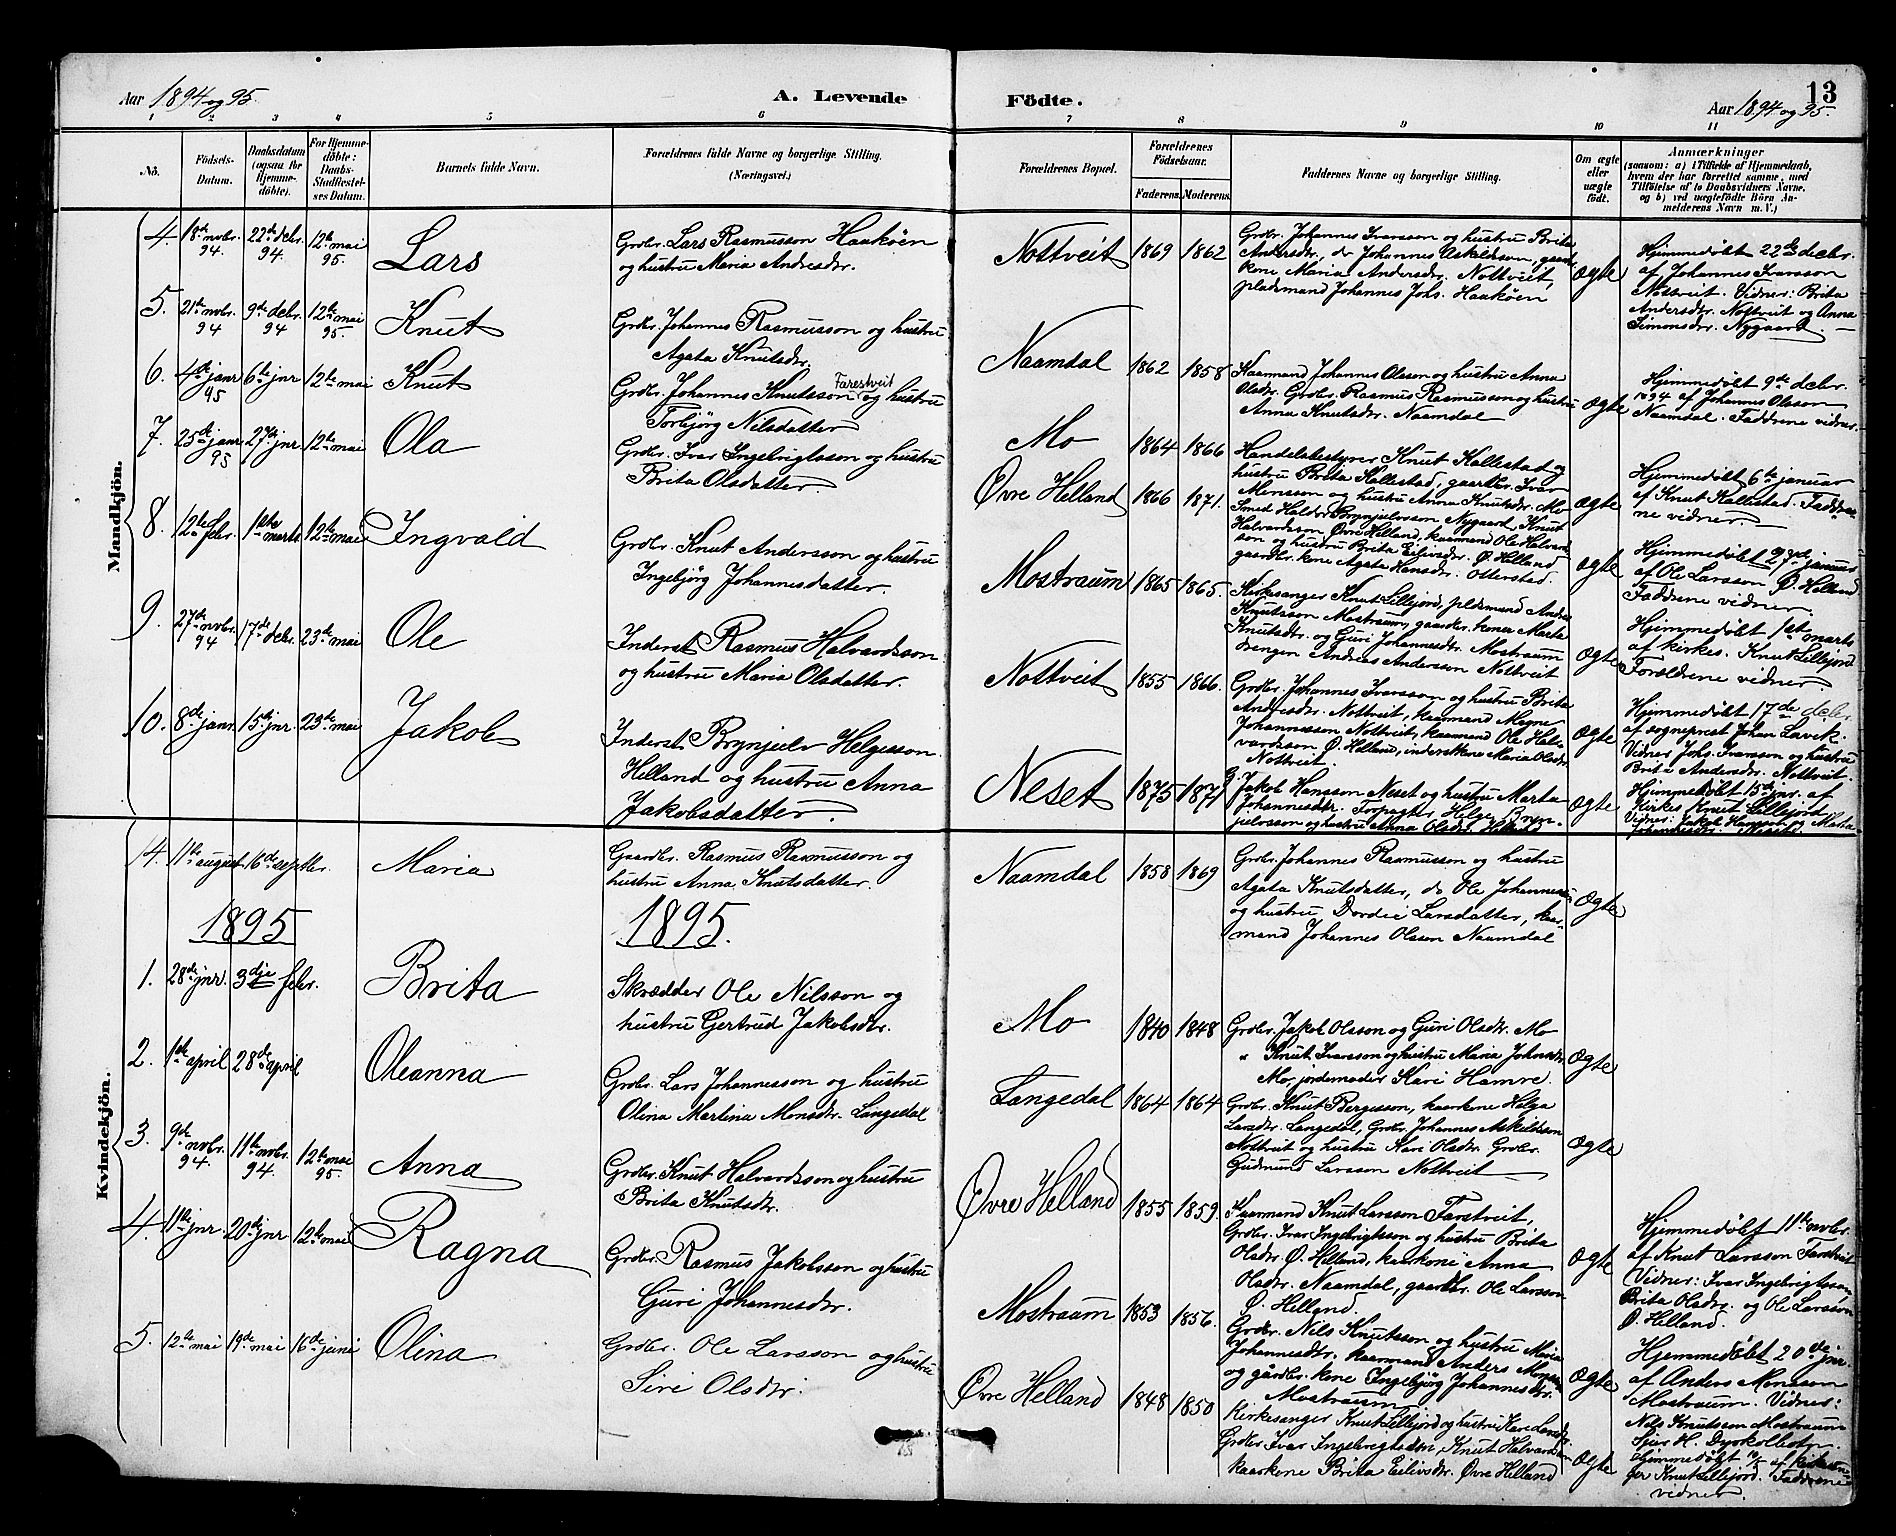 Aar 1894 og 95.
A. Levende
Födte.
Aar 1894 og 95.
13
1 2 3 4 5 6 7 8 9 10 11
No.
Födsels-
Datum.
Daabsdatum
(ogsaa for
Hjemme-
döbte).
For Hjemme-
döbte:
Daabs-
Stadfæstel-
ses Datum.
Barnets fulde Navn.
Forældrenes fulde Navne og borgerlige Stilling.
(Næringsvei.)
Forældrenes Bopæl.
Forældrenes
Födselsaar.
Faderens. Moderens.
Faddernes Navne og borgerlige Stilling.
Om ægte
eller
uægte
födt.
Anmærkninger
(saasom: a) i Tilfælde af Hjemmedaab,
hvem der har forrettet samme, med
Tilföielse af to Daabsvidners Navne,
og b) ved uægtefödte Börn An-
melderens Navn m. V.)
Mandkjön.
4. 18de novbr. 94. 22de debr. 94. 12te mai 95. Lars
Grdbr. Lars Rasmusson Haaköen
og hustru Maria Andersdtr.
Nottveit 1869 1862
Grdbr. Johannes Ivarsson og hustru Brita
Andersdtr., do Johannes Askildsson, gaardbr.
kone Maria Andersdtr. Nottveit,
pladsmand Johannes Johs. Haaköen
Ægte
Hjemmedöbt 22de debr.
af Johannes Ivarsson
Nottveit. Vidner: Brita
Andersdtr. Nottveit og Anna
Simonsdtr. Nygaard.
5. 21de novbr. 94 9de debr. 94 12te mai 95. Knut
Grdbr. Johannes Rasmusson og hustru
Agata Knutsdtr.
Naamdal 1862 1858
Kaarmand Johannes Olsson og hustru Anna
Olsdtr. Grdbr. Rasmus Rasmusson og hustru
Anna Knutsdtr. Naamdal
Ægte
Hjemmedöbt 9de debr.
1894 af Johannes Olsson
Naamdal. Faddrene vidner.
6. 4de janr 95 6te jnr 12te mai Knut
Grdbr. Johannes Knutsson Farestveit og hustru
Torbjörg Nilsdatter
Mo 1864 1866
Handelsbestyrer Knut Kallestad og
hustru Brita Kallestad, gaardbr. Ivar
Monsson og hustru Anna Knutsdtr. Mo
Ægte
Hjemmedöbt 6te januar
af Knut Kallestad. Faddre-
ne vidner.
7. 25de janr 95 27de jnr. 12te mai Ola
Grdbr. Ivar Ingebrigtsson og hustru
Brita Olsdatter.
Övre Helland 1866 1871.
Smed Haldor Brynjulvsson Nygaard, Knut
Halvardsson, Övre Helland, kaarmand Ole Halvard-
son og hustru Brita Eilivsdtr. Ö. Helland
gaardbr. kone Agata Hansdtr. Otterstad.
Ægte
Hjemmedöbt 27de januar
af Ole Larsson Ö. Helland
Faddrene vidner.
8. 12te febr. 1ste marts 12te mai Ingvald
Grdbr. Knut Andersson og hustru
Ingebjörg Johannesdatter.
Mostraum 1865 1865.
Kirkesanger Knut Lillejord, pldsmand Andre
Knutsson Mostraum, gaardbr. koner Marta
Knutsdtr. og Guri Johannesdtr. Mostraum
drengen Andreas Andersson Nottveit
Ægte
Hjemmedöbt 1ste marts
af kirkes. Knut Lillejord
Foreldrene vidner.
9. 27de novbr. 94 17de debr. 23de mai Ole
Inderst Rasmus Halvardsson
og hustru Maria Olsdatter.
Nottveit 1855 1866.
Grdbr. Johannes Ivarsson og hustru Brita
Andersdtr. Nottveit, kaarmand Magne
Johannesson Nottveit, kaarmand Ole Hal-
vardsson Ö. Helland, inderstkone Maria Olsdtr.
Nottveit.
Ægte
Hjemmedöbt 17de debr.
af sogneprest Johan Lavik.
Vidner Joh. Ivarsson og hustru
Brita Andersdtr. Nottveit.
10. 8de janr. 15de jnr. 23de mai Jakob
Inderst Brynjulv Helgesson
Helland og hustru Anna
Jakobsdatter.
Neset 1875 1871
G. Jakob Hansson Neset og hustru Marta
Johannesdtr. Forpagter Helge Bryn-
julvsson og hustru Anna Olsdtr. Helland
Ægte
Hjemmedöbt 15de jnr. af
Kirkes. Knut Lillejord
Vidner: Jakob Hansson og Marta
Johannesdtr. Neset
Kvindekjön.
14. 11te august 16de septbr. Maria
Gaardbr. Rasmus Rasmusson og
hustru Anna Knutsdatter.
Naamdal 1858 1869
Grdbr. Johannes Rasmusson og hustru
Agata Knutsdatter, do Ole Johannesson
og hustru Dordei Larsdatter, kaar-
mand Johannes Olsson Naamdal
Ægte
1895 1895.
1. 28de jnr. 3dje febr. Brita
Skrædder Ole Nilsson og
hustru Gertrud Jakobsdtr.
Mo 1840 1848
Grdbr. Jakob Olsson og Guri Olsdtr. Mo
" Knut Ivarsson og hustru Maria Johnsdtr
Mo, jordemoder Kari Hamre.
Ægte
2. 1ste april 28de april Oleanna
Grdbr. Lars Johannesson og hustru
Olina Martina Monsdtr. Langedal
Langedal 1864 1864
Grdbr. Knut Bergesson, kaarkone Helga
Larsdtr. Langedal, Grdbr. Johannes Askildsson
Nottveit og hustru Kari Olsdtr. Grdbr.
Gudmund Larsson Nottveit
Ægte
3. 9de novbr. 94 11te novbr. 94. 12te mai 95. Anna
Grdbr. Knut Halvardsson og hustru
Brita Knutsdtr.
Övre Helland 1855 1859.
Kaarmand Knut Larsson Farstveit,
Grdbr. Ivar Ingebrigtsson og hustru Brita
Olsdtr. Ö. Helland, kaarkone Anna
Olsdtr. Naamdal, gaardbr. Ole Larsson
Ö. Helland.
Ægte
Hjemmedöbt 11te novbr.
af Knut Larsson Farstveit
Vidner: Ivar Ingebrigtsson
Brita Olsdtr. og Ole Larsson
Ö. Helland.
4. 11te jnr. 20de jnr 12te mai Ragna
Grdbr. Rasmus Jakobsson og hustru
Guri Johannesdtr.
Mostraum 1853 1856.
Grdbr. Nils Knutsson og hustru Maria
Johannesdtr., kaarmand Anders Monsson
og gårdbr. kone Ingebjörg Johannesdtr.
Mostraum
Ægte
Hjemmedöbt 20de jnr.
af Anders Monsson
Mostraum. Vidner:
Nils Knutsson Mostraum
5. 12te mai 19de mai 16de juni Olina
Grdbr. Ole Larsson og hustru
Siri Olsdtr.
Övre Helland 1848 1850
Kirkesanger Knut Lillejord og hustru Kari
Grdbr Ivar Ingebrigtsson, Knut Halvardson
kaarkone Brita Eilivsdtr. Övre Helland
Ægte
Hjemmedöbt af kirkesan-
ger Knut Lillejord. Faddrene
vidner.